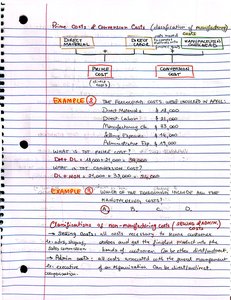 Prime Costs & Conversion Costs (classification of manufacturing costs)
DIRECT MATERIAL
DIRECT LABOR
MANUFACTURING OVERHEAD
PRIME COST
CONVERSION COST
EXAMPLE 2 THE FOLLOWING COSTS WERE INCURRED IN APRIL:
Direct Materials $ 18,000
Direct Labor $ 21,000
Manufacturing OH $ 33,000
Selling Expenses $ 14,000
Administrative Exp $ 19,000
WHAT IS THE PRIME COST?
DM + DL = 18,000 + 21,000 = 39,000
WHAT IS THE CONVERSION COST?
DL + MOH = 21,000 + 33,000 = 54,000
EXAMPLE 3 WHICH OF THE FOLLOWING ARE
MANUFACTURING COSTS?
A. B. C. D.
Classifications of non-manufacturing costs
→ Selling Costs: all costs necessary to secure customer
orders and get the finished product into the
hands of customer. Can be either direct/indirect
→ Admin costs: all costs associated with the general management
of an organization Can be direct/indirect